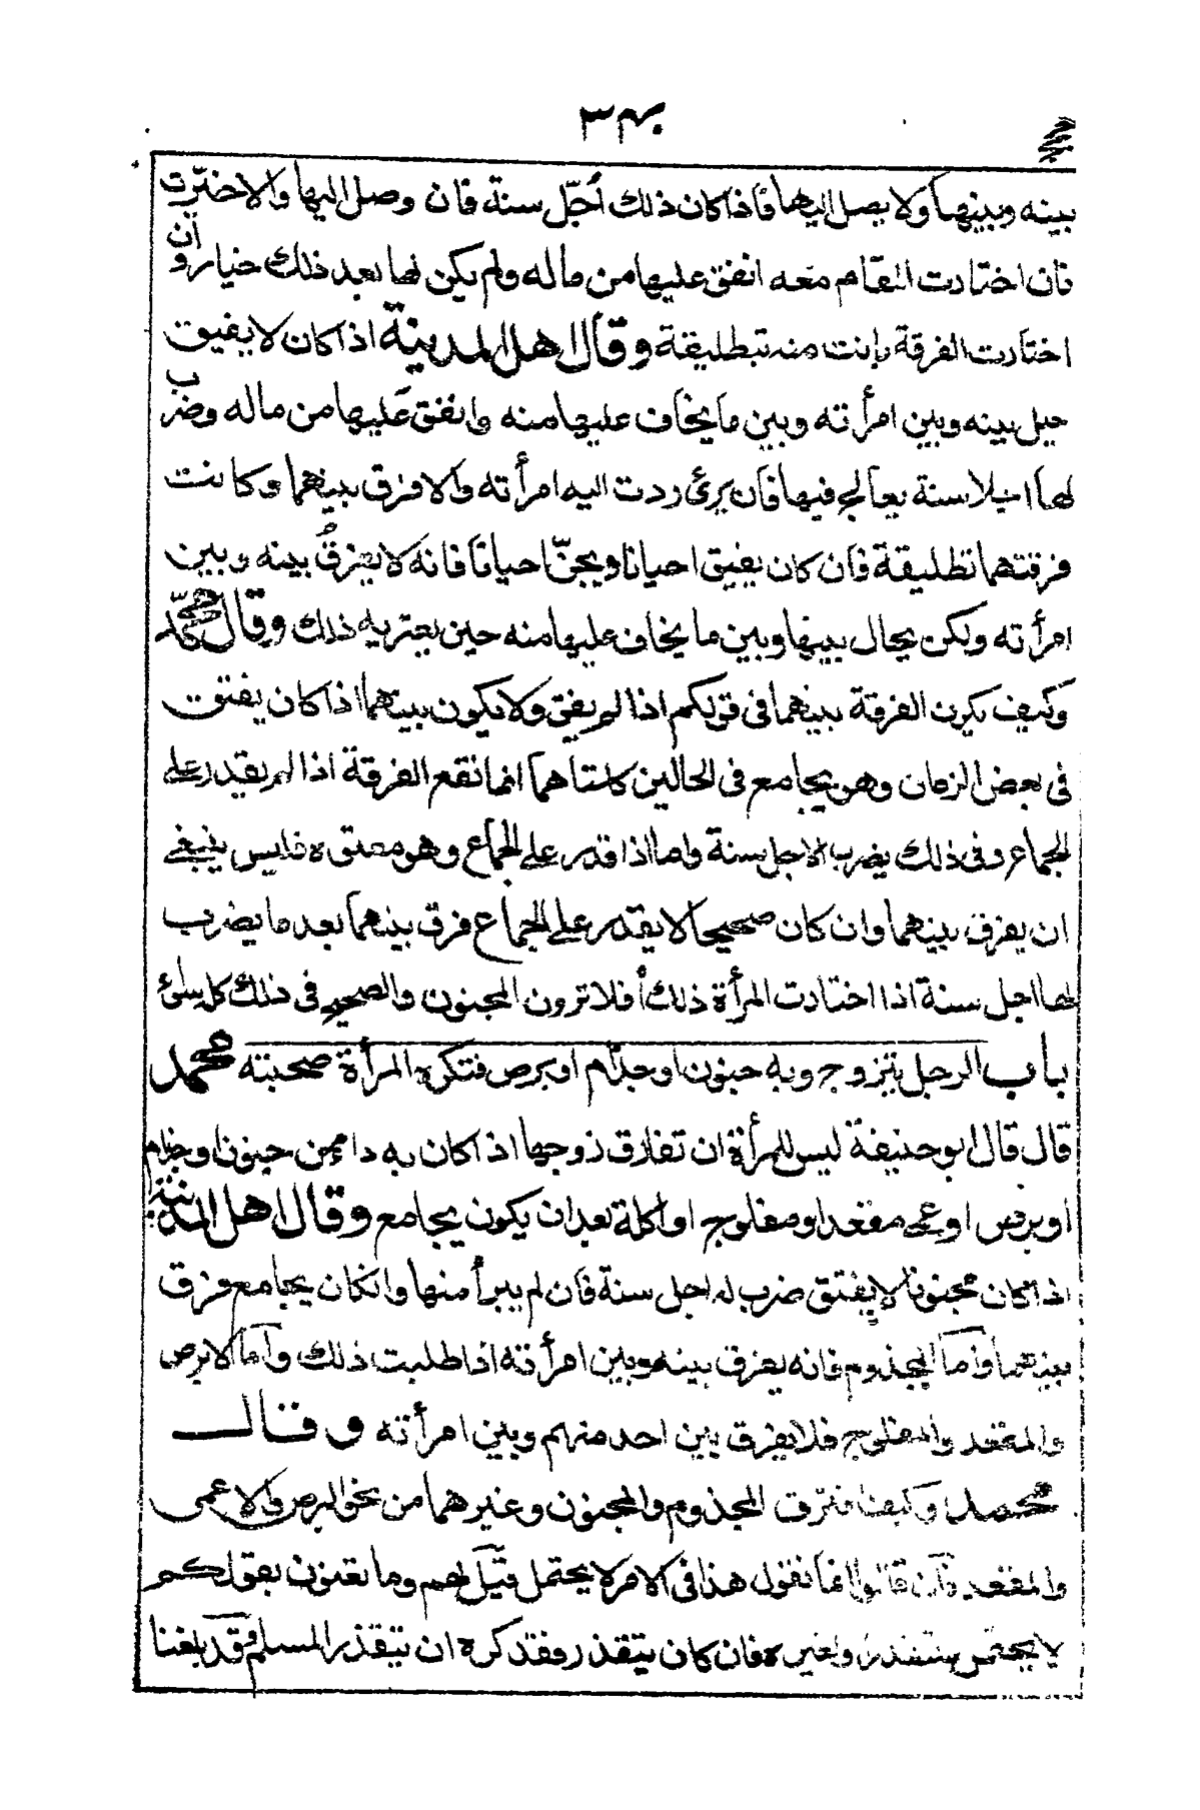 بينه وبينها ولا يصل اليها فاذا كان ذلك أجّل سنة فان وصل اليها والا خيّرت
فان اختارت المقام معه انفق عليها من ماله ولم يكن لها بعد ذلك خيار وان
اختارت الفرقة بانت منه بتطليقة وقال اهل المدينة اذا كان لا يفيق
حيل بينه وبين امرأته وبين ما يخاف عليها منه وانفق عليها من ماله وضرب
لها اجلا سنة يعالج فيها فان برئ ردت اليه امرأته والا فرق بينهما وكانت
فرقتهما تطليقة فان كان يفيق احيانا ويجنّ احيانا فانه لا يفرق بينه وبين
امرأته ولكن يحال بينها وبين ما يخاف عليها منه حين يعتريه ذلك وقال محمّد
وكيف يكون الفرقة بينهما في قولكم اذا لم يفق ولا يكون بينهما اذا كان يفتق
في بعض الزمان وهو يجامع في الحالين كلتاهما انما تقع الفرقة اذا لم يقدر على
الجماع وفي ذلك يضرب الاجل سنة واما اذا قدر على الجماع وهو معتوه فليس ينبغي
ان يفرق بينهما وان كان صحيحا لا يقدر على الجماع فرق بينهما بعد ما يضرب
لها اجل سنة اذا اختارت المرأة ذلك أفلا ترون المجنون والصحيح في ذلك كل شئ
باب الرجل يتزوج وبه جنون او جذام او برص فتكره المرأة صحبته محمد
قال قال ابو حنيفة ليس للمرأة ان تفارق زوجها اذا كان به داء من جنون او جذام
او برص او عمى مقعد او مفلوج او اكلة بعد ان يكون يجامع وقال اهل المدينة
اذا كان مجنونا لا يفتق ضرب له اجل سنة فان لم يبرأ منها وانكان يجامع فرق
بينهما واما المجذوم فانه يفرق بينه وبين امرأته اذا طلبت ذلك واما الابرص
والمقعد والمفلوج فلا يفرق بين احد منهم وبين امرأته وقال
محمد وكيف فترق المجذوم والمجنون وغيرهما من نحو البرص والاعمى
والمقعد فان قالوا انما نقول هذا في الامر لا يحتمل قيل لهم وما تعنون بقولكم
لا يحتمل يتقذر ولغيره فان كان يتقذر وفقد كره ان يتقذر المسلم فقد بلغنا